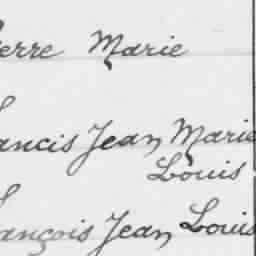 erre Marie
ancis Jean Marie
Louis
ançois Jean Louis